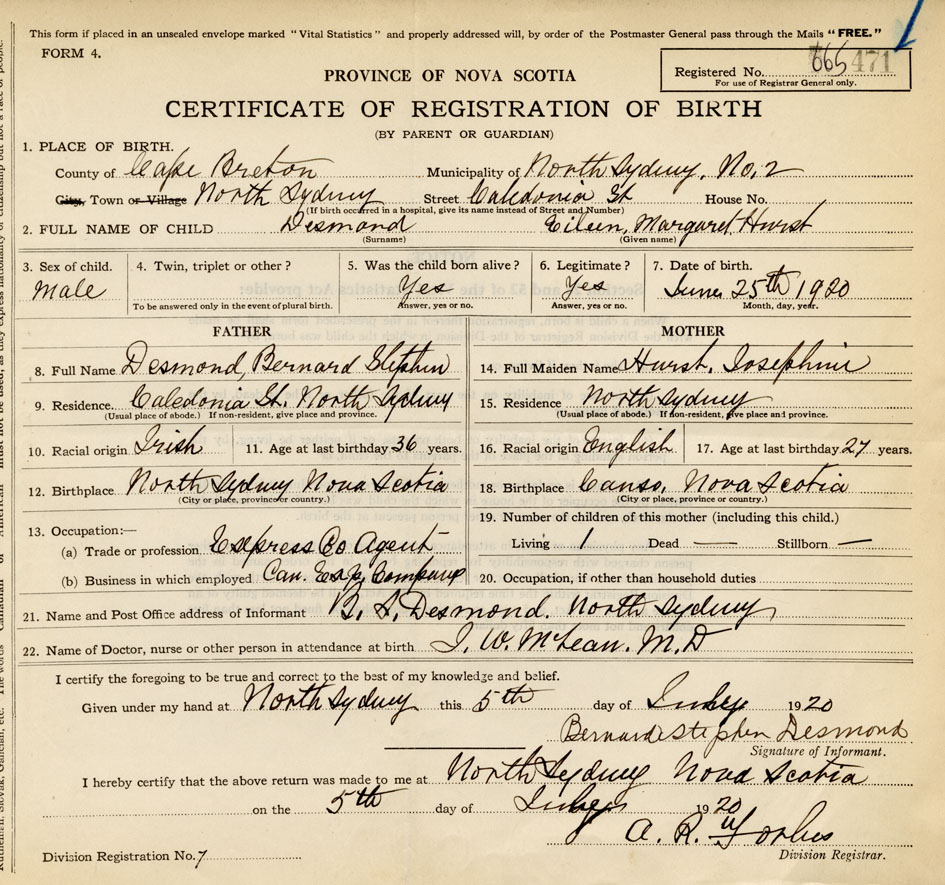 This form if placed in an unsealed envelope marked "Vital Statistics" and properly addressed will, by order of the Postmaster General pass through the Mails "FREE."
FORM 4.
Registered No. 665 471
For use of Registrar General only.
PROVINCE OF NOVA SCOTIA
CERTIFICATE OF REGISTRATION OF BIRTH
(BY PARENT OR GUARDIAN)
1. PLACE OF BIRTH.
County of Cape Breton Municipality of North Sydney, No, 2
City, Town or Village North Sydney Street Caledonia St House No.
(If birth occurred in a hospital, give its name instead of Street and Number)
2. FULL NAME OF CHILD Desmond Eileen, Margaret Hurst
(Surname) (Given name)
3. Sex of child. 4. Twin, triplet or other? 5. Was the child born alive? 6. Legitimate? 7. Date of birth.
Male Yes Yes June 25th 1920
To be answered only in the event of plural birth. Answer, yes or no. Answer, yes or no. Month, day, year.
FATHER MOTHER
8. Full Name Desmond, Bernard Stephen 14. Full Maiden Name Hurst, Josephine
9. Residence. Caledonia St. North Sydney 15. Residence North Sydney
(Usual place of abode.) If non-resident, give place and province. (Usual place of abode.) If non-resident, give place and province.
10. Racial origin Irish 11. Age at last birthday 36 years. 16. Racial origin English 17. Age at last birthday 27 years.
12. Birthplace North Sydney Nova Scotia 18. Birthplace Canso, Nova Scotia
(City or place, province or country.) (City or place, province or country.)
13. Occupation:— 19. Number of children of this mother (including this child.)
(a) Trade or profession Express Co Agent Living 1 Dead — Stillborn —
(b) Business in which employed Can. Exp. Company 20. Occupation, if other than household duties
21. Name and Post Office address of Informant B. S. Desmond. North Sydney
22. Name of Doctor, nurse or other person in attendance at birth J. W. McLean. M. D
I certify the foregoing to be true and correct to the best of my knowledge and belief.
Given under my hand at North Sydney this 5th day of July 1920
Bernard Stephen Desmond
Signature of Informant.
I hereby certify that the above return was made to me at North Sydney Nova Scotia
on the 5th day of July 1920
A. R. Forbes
Division Registration No. 7 Division Registrar.